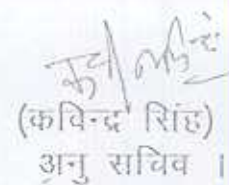 (कविन्द्र सिंह)
अनु सचिव ।